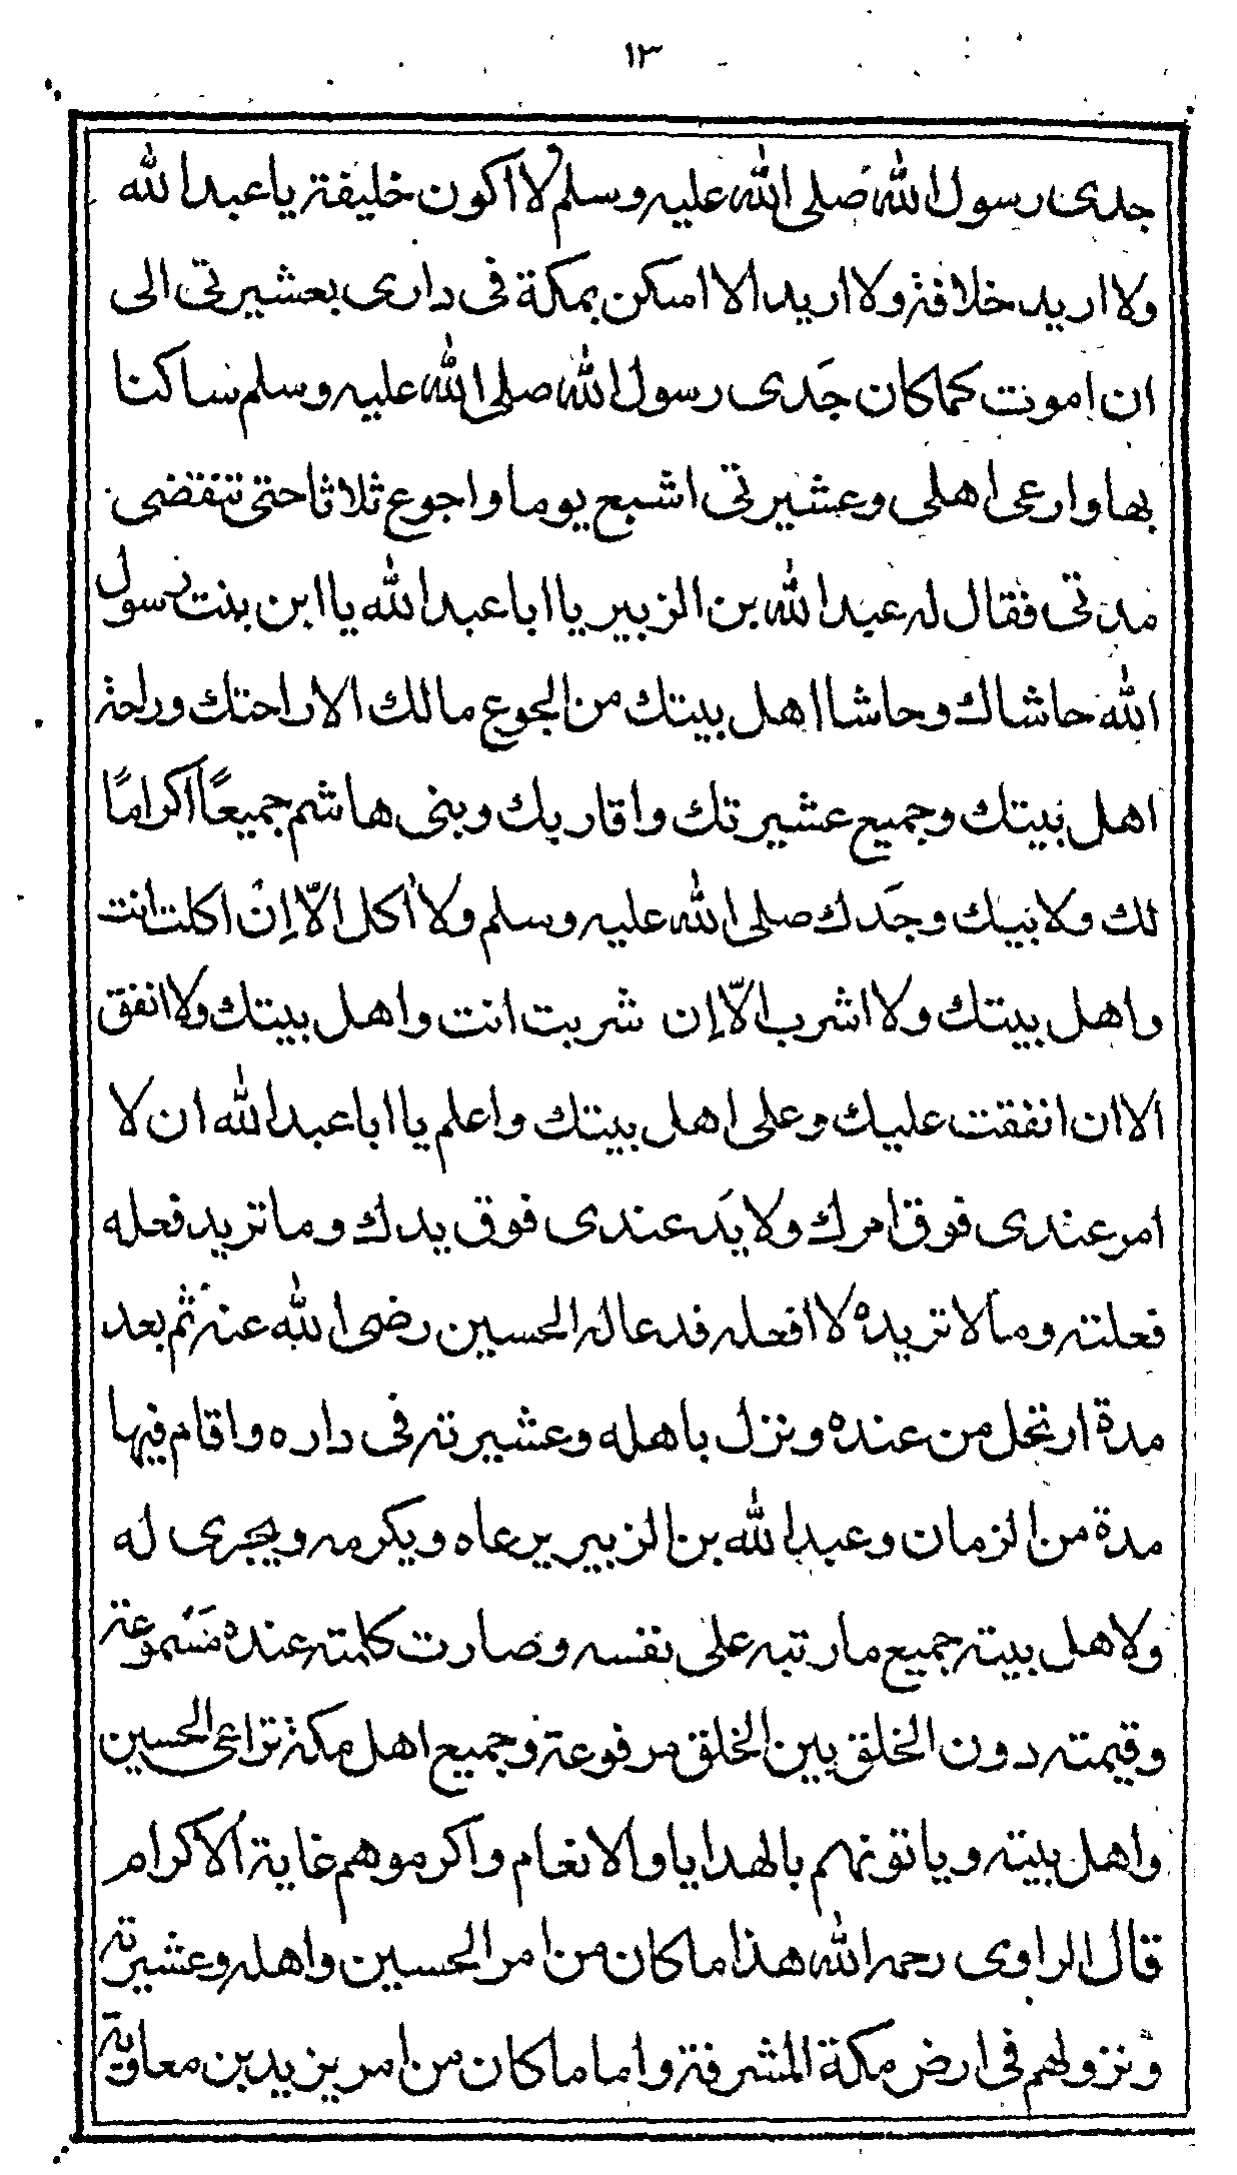 ١٣
جدى رسول الله صلى الله عليه وسلم لا اكون خليفة يا عبد الله
ولا اريد خلافة ولا اريد الا اسكن بمكة فى دارى بعشيرتى الى
ان اموت كما كان جَدى رسول الله صلى الله عليه وسلم ساكنا
بها وارعى اهلى وعشيرتى اشبع يوما واجوع ثلاثا حتى تنقضى
مدتى فقال له عبد الله بن الزبير يا ابا عبد الله يا ابن بنت رسول
الله حاشاك وحاشا اهل بيتك من الجوع مالك الا راحتك وراحة
اهل بيتك وجميع عشيرتك واقاربك وبنى هاشم جميعًا اكرامًا
لك ولابيك وجَدك صلى الله عليه وسلم ولا أكل الّا إن اكلت انت
واهل بيتك ولا اشرب الّا إن شربت انت واهل بيتك ولا انفق
الا ان انفقت عليك وعلى اهل بيتك واعلم يا ابا عبد الله ان لا
امر عندى فوق امرك ولا يَد عندى فوق يدك وما تريد فعله
فعلته وما لا تريده لا افعله فدعا له الحسين رضى الله عنه ثم بعد
مدة ارتحل من عنده ونزل باهله وعشيرته فى داره واقام فيها
مدة من الزمان وعبد الله بن الزبير يرعاه ويكرمه ويجرى له
ولاهل بيته جميع ما رتبه على نفسه وصارت كلمته عنده مَسموعة
وقيمته دون الخلق بين الخلق مرفوعة وجميع اهل مكة تراعى الحسين
واهل بيته وياتونهم بالهدايا والانعام واكرموهم غاية الاكرام
قال الراوى رحمه الله هذا ما كان من امر الحسين واهله وعشيرته
ونزولهم فى ارض مكة المشرفة واما ما كان من امر يزيد بن معاوية